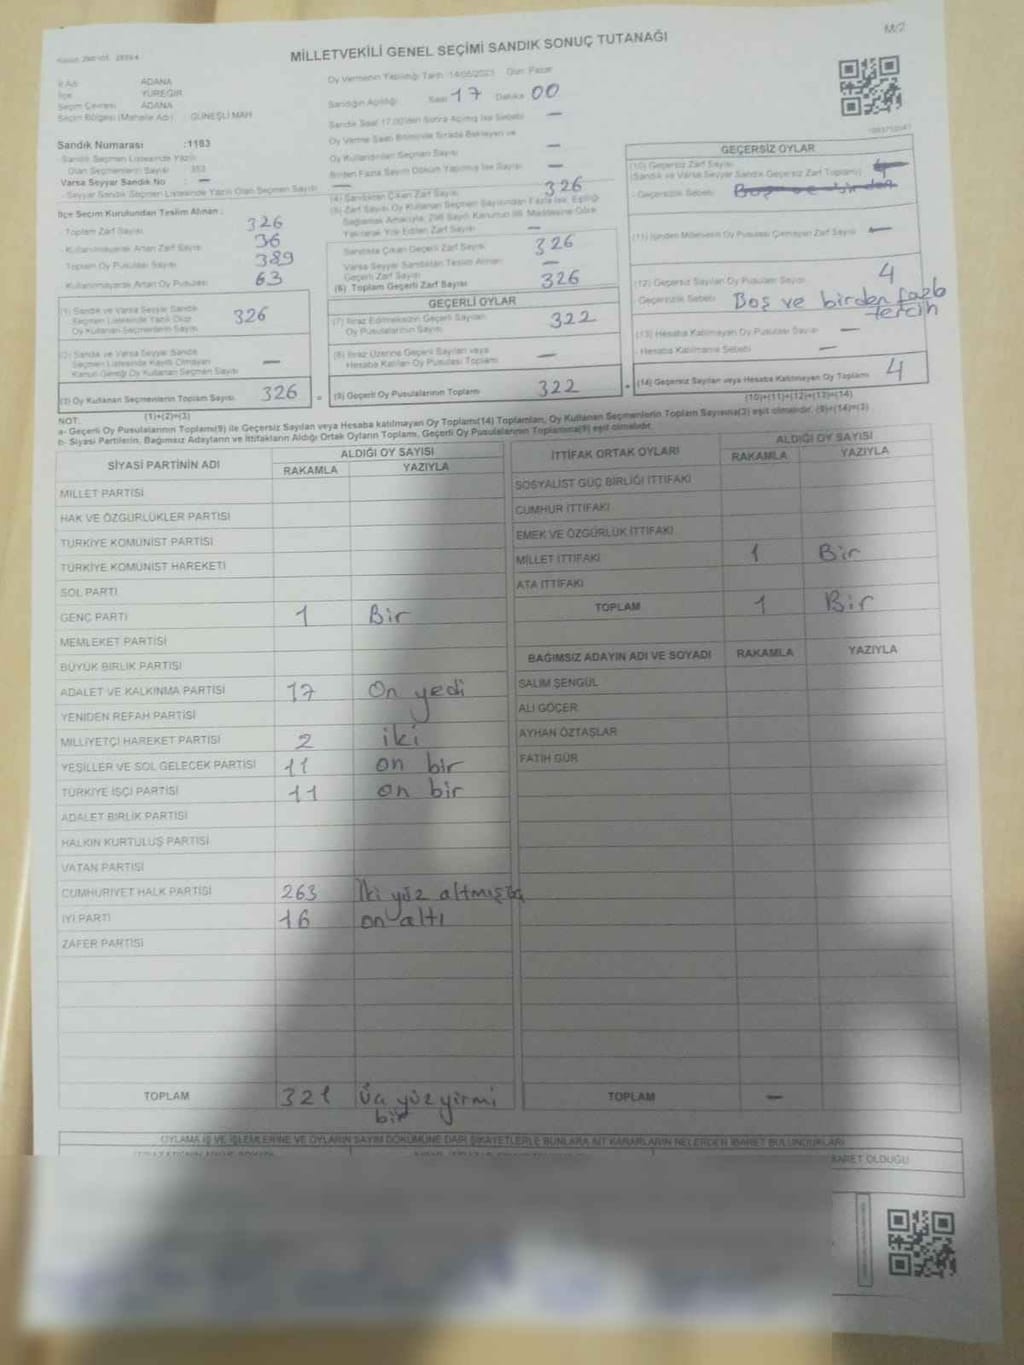 MİLLETVEKİLİ GENEL SEÇİMİ SANDIK SONUÇ TUTANAĞI
M/2
İl Adı : ADANA
İlçe : YÜREĞİR
Seçim Çevresi : ADANA
Seçim Bölgesi (Mahalle Adı) : GÜNEŞLİ MAH
Sandık Numarası :1183
Sandık Seçmen Listesinde Yazılı
Olan Seçmenlerin Sayısı : 353
Varsa Seyyar Sandık No : —
Seyyar Sandık Seçmen Listesinde Yazılı Olan Seçmen Sayısı : —
İlçe Seçim Kurulundan Teslim Alınan :
Toplam Zarf Sayısı 326
Kullanılmayarak Artan Zarf Sayısı 36
Toplam Oy Pusulası Sayısı 389
Kullanılmayarak Artan Oy Pusulası 63
(1) Sandık ve Varsa Seyyar Sandık
Seçmen Listesinde Yazılı Olup
Oy Kullanan Seçmenlerin Sayısı 326
(2) Sandık ve Varsa Seyyar Sandık
Seçmen Listesinde Kayıtlı Olmayan
Kanun Gereği Oy Kullanan Seçmen Sayısı —
(3) Oy Kullanan Seçmenlerin Toplam Sayısı 326
(1)+(2)=(3)
Oy Vermenin Yapıldığı Tarih :14/05/2023 Gün: Pazar
Sandığın Açıldığı : Saat 17 Dakika 00
Sandık Saat 17.00'den Sonra Açılmış İse Sebebi : —
Oy Verme Saati Bitiminde Sırada Bekleyen ve
Oy Kullandırılan Seçmen Sayısı —
Birden Fazla Sayım Döküm Yapılmış İse Sayısı —
(4) Sandıktan Çıkan Zarf Sayısı 326
(5) Zarf Sayısı Oy Kullanan Seçmen Sayısından Fazla İse, Eşitliği
Sağlamak Amacıyla, 298 Sayılı Kanunun 98. Maddesine Göre
Yakılarak Yok Edilen Zarf Sayısı —
Sandıkta Çıkan Geçerli Zarf Sayısı 326
Varsa Seyyar Sandıktan Teslim Alınan
Geçerli Zarf Sayısı —
(6) Toplam Geçerli Zarf Sayısı 326
GEÇERLİ OYLAR
(7) İtiraz Edilmeksizin Geçerli Sayılan
Oy Pusulalarının Sayısı 322
(8) İtiraz Üzerine Geçerli Sayılan veya
Hesaba Katılan Oy Pusulası Toplamı —
(9) Geçerli Oy Pusulalarının Toplamı 322
GEÇERSİZ OYLAR
(10) Geçersiz Zarf Sayısı 4
(Sandık ve Varsa Seyyar Sandık Geçersiz Zarf Toplamı)
Geçersizlik Sebebi : Boş ve birden
(11) İçinden Milletvekili Oy Pusulası Çıkmayan Zarf Sayısı —
(12) Geçersiz Sayılan Oy Pusulası Sayısı 4
Geçersizlik Sebebi : Boş ve birden fazla
tercih
(13) Hesaba Katılmayan Oy Pusulası Sayısı —
Hesaba Katılmama Sebebi : —
(14) Geçersiz Sayılan veya Hesaba Katılmayan Oy Toplamı 4
(10)+(11)+(12)+(13)=(14)
NOT:
a- Geçerli Oy Pusulalarının Toplamı(9) ile Geçersiz Sayılan veya Hesaba katılmayan Oy Toplamı(14) Toplamları, Oy Kullanan Seçmenlerin Toplam Sayısına(3) eşit olmalıdır. (9)+(14)=(3)
b- Siyasi Partilerin, Bağımsız Adayların ve İttifakların Aldığı Ortak Oyların Toplamı, Geçerli Oy Pusulalarının Toplamına(9) eşit olmalıdır.
SİYASİ PARTİNİN ADI ALDIĞI OY SAYISI
RAKAMLA YAZIYLA
MİLLET PARTİSİ
HAK VE ÖZGÜRLÜKLER PARTİSİ
TÜRKİYE KOMÜNİST PARTİSİ
TÜRKİYE KOMÜNİST HAREKETİ
SOL PARTİ
GENÇ PARTİ 1 Bir
MEMLEKET PARTİSİ
BÜYÜK BİRLİK PARTİSİ
ADALET VE KALKINMA PARTİSİ 17 On yedi
YENİDEN REFAH PARTİSİ
MİLLİYETÇİ HAREKET PARTİSİ 2 iki
YEŞİLLER VE SOL GELECEK PARTİSİ 11 on bir
TÜRKİYE İŞÇİ PARTİSİ 11 on bir
ADALET BİRLİK PARTİSİ
HALKIN KURTULUŞ PARTİSİ
VATAN PARTİSİ
CUMHURİYET HALK PARTİSİ 263 İki yüz altmış
İYİ PARTİ 16 on altı
ZAFER PARTİSİ
TOPLAM 321 Üç yüz yirmi
bir
İTTİFAK ORTAK OYLARI ALDIĞI OY SAYISI
RAKAMLA YAZIYLA
SOSYALİST GÜÇ BİRLİĞİ İTTİFAKI
CUMHUR İTTİFAKI
EMEK VE ÖZGÜRLÜK İTTİFAKI
MİLLET İTTİFAKI 1 Bir
ATA İTTİFAKI
TOPLAM 1 Bir
BAĞIMSIZ ADAYIN ADI VE SOYADI RAKAMLA YAZIYLA
SALİM ŞENGÜL
ALİ GÖÇER
AYHAN ÖZTAŞLAR
FATİH GÜR
TOPLAM —
OYLAMA İŞ VE İŞLEMLERİNE VE OYLARIN SAYIM DÖKÜMÜNE DAİR ŞİKAYETLERLE BUNLARA AİT KARARLARIN NELERDEN İBARET BULUNDUKLARI